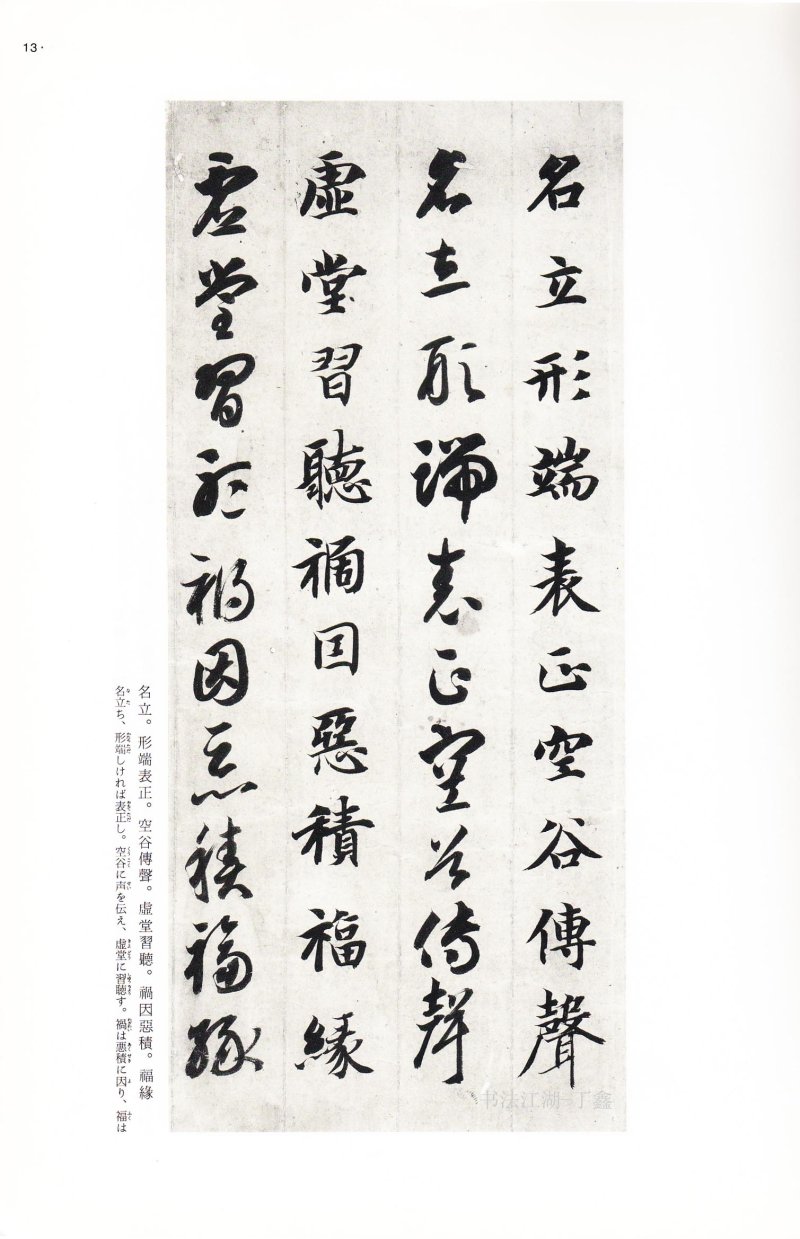 13・
名立形端表正空谷傳聲
名立形端表正空谷傳聲
虛堂習聽禍因惡積福緣
虛堂習聽禍因惡積福緣
名立。形端表正。空谷傳聲。虛堂習聽。禍因惡積。福緣
名立ち、形端しければ表正し。空谷に声を伝え、虚堂に習聴す。禍は悪積に因り、福は
书法江湖-丁鑫